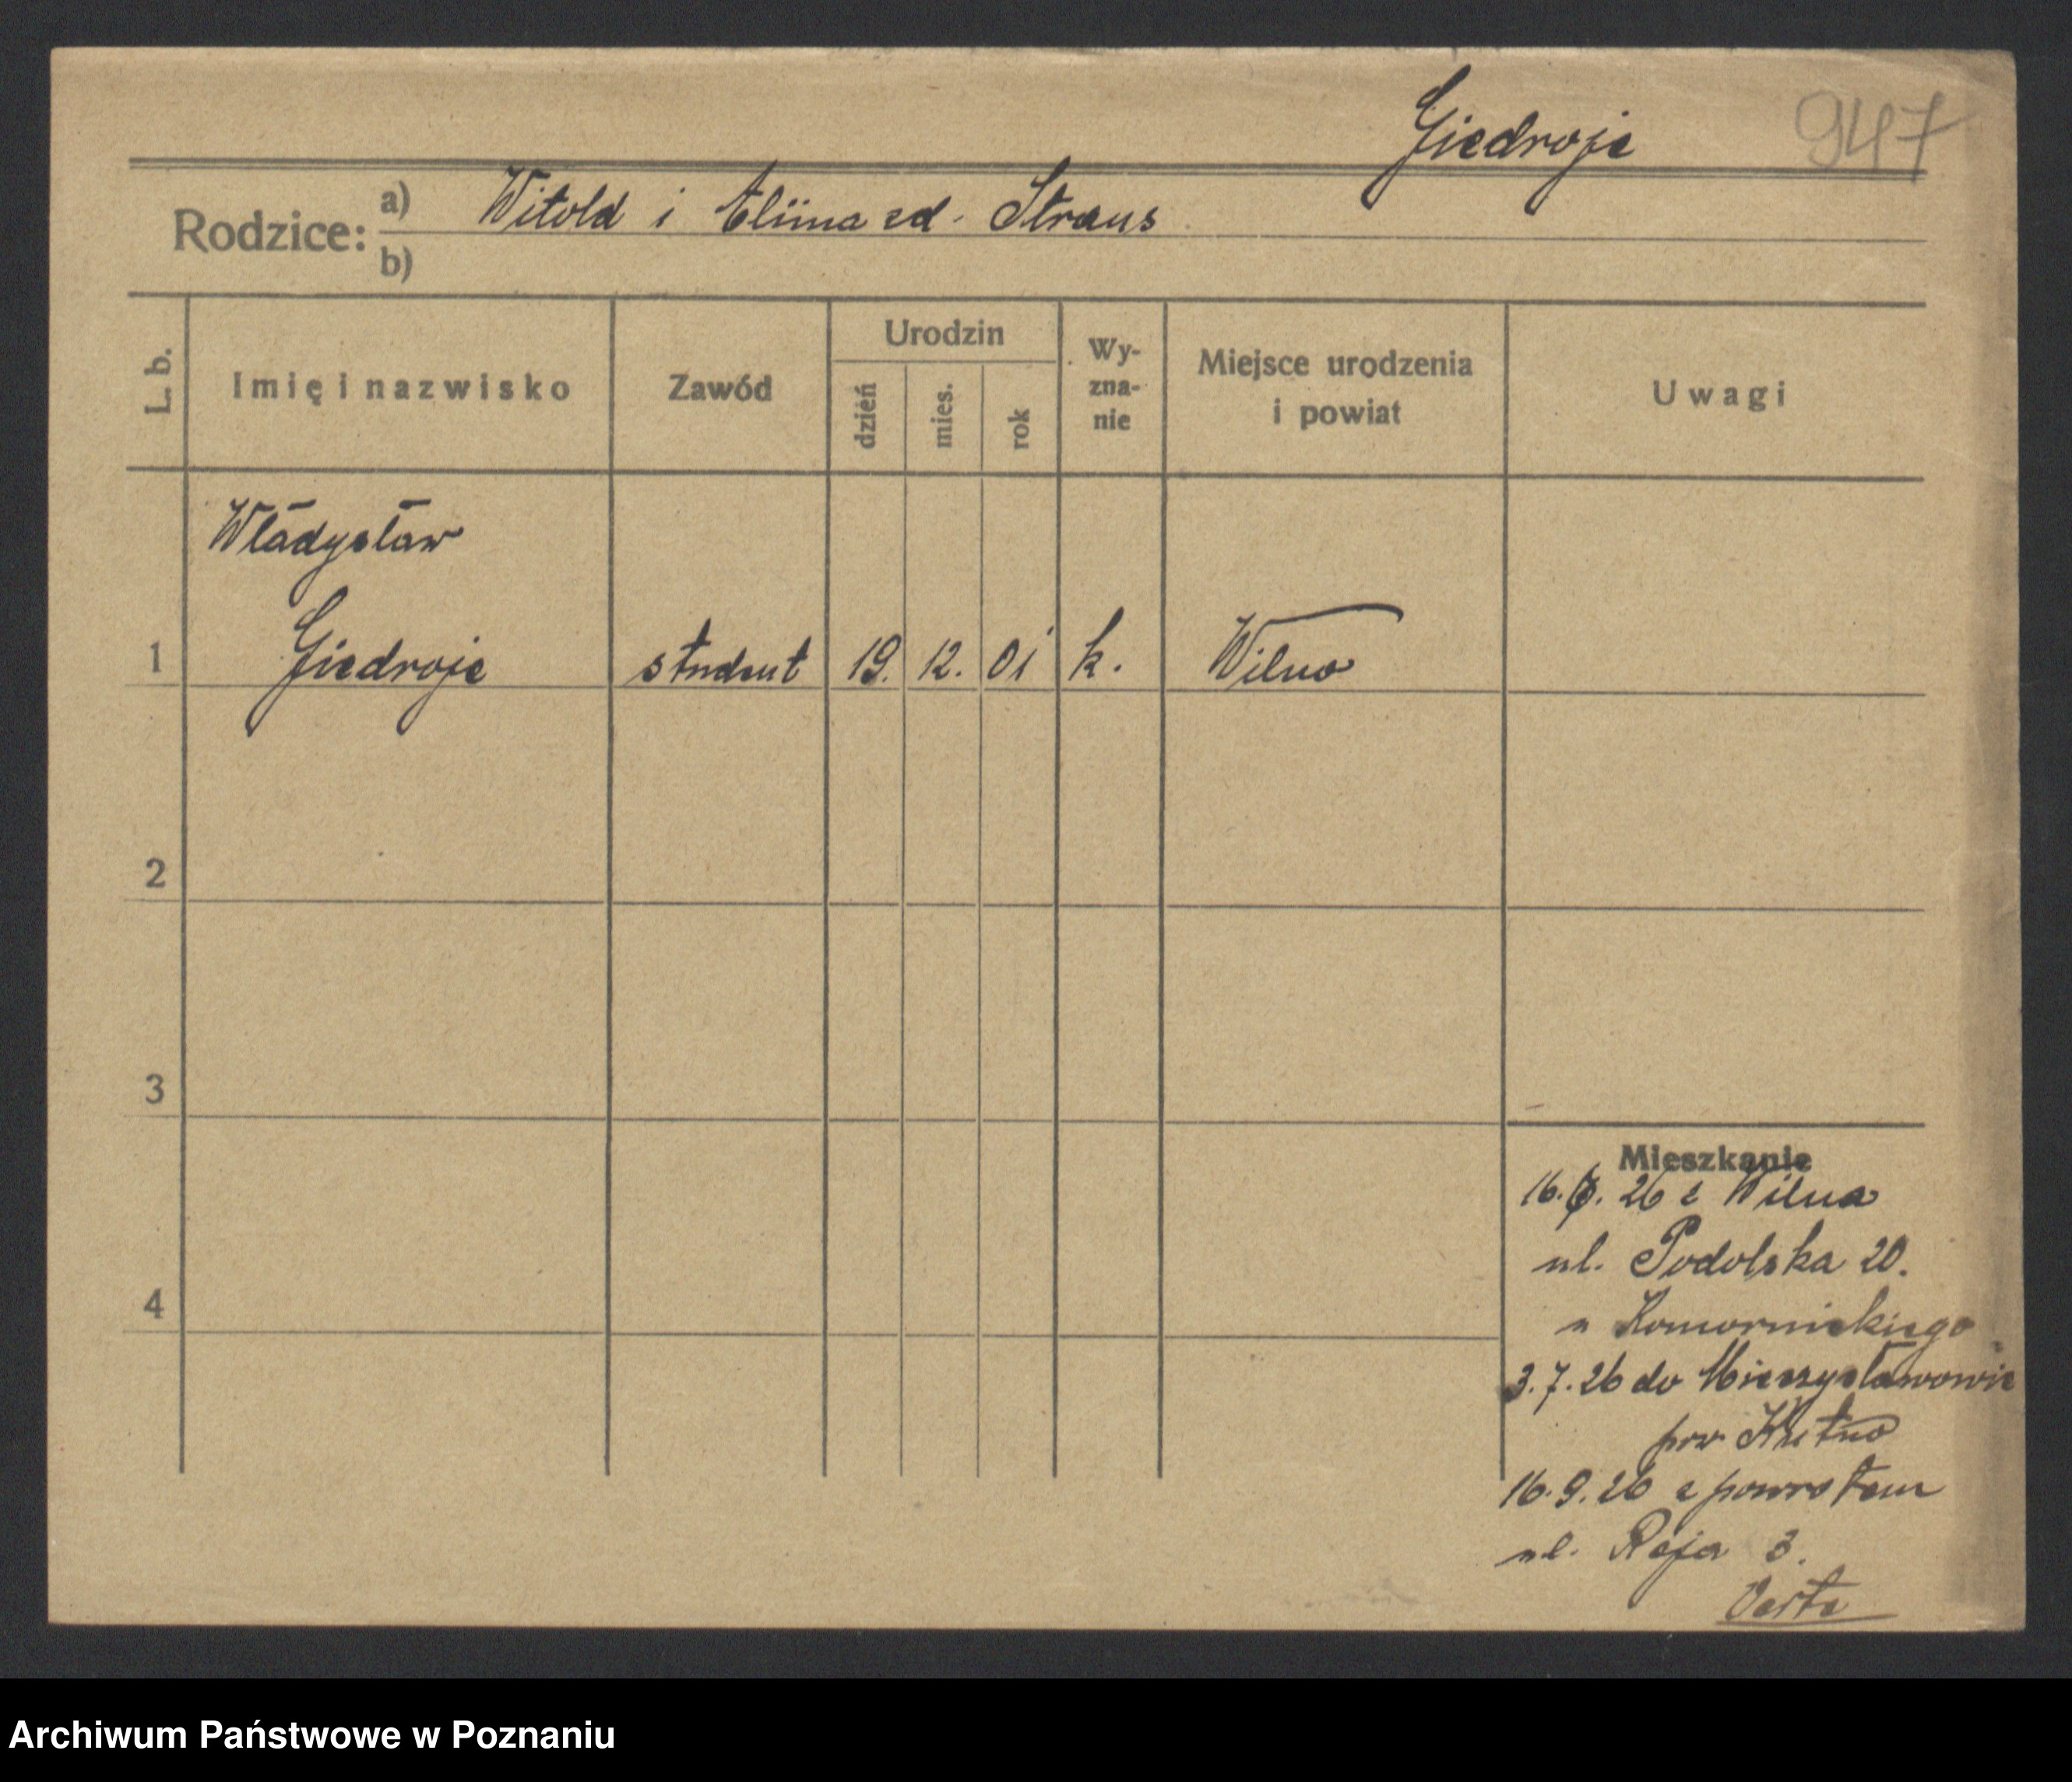 Giedroje
947
Rodzice: a) Witold i Alina zd. Straus
b)
L. b.
Imię i nazwisko
Zawód
Urodzin
dzień
mies.
rok
Wy-
zna-
nie
Miejsce urodzenia
i powiat
Uwagi
Władysław
1 Giedroje student 19. 12. 01 k. Wilno
2
3
4
Mieszkanie
16. 26 z Wilna
ul. Podolska 20.
u Komornickiego
3.7.26 do Mieczysławowie
pow Kutno
16.9.26 z powrotem
ul. Reja 3.
Verte
Archiwum Państwowe w Poznaniu